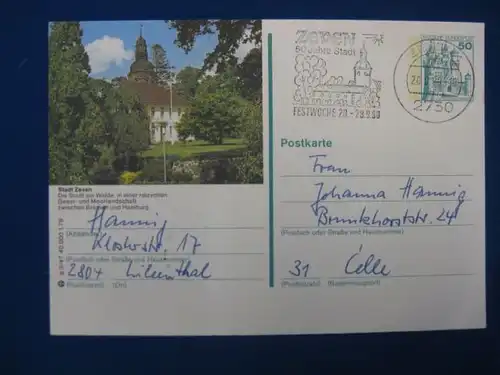 ZEVEN
50 Jahre Stadt
FESTWOCHE 20.-28.9.80
2730
DEUTSCHE BUNDESPOST
50
Postkarte
Frau
Johanna Hannig
Brunkhorststr. 24
(Postfach oder Straße und Hausnummer)
31 Celle
(Postleitzahl) (Bestimmungsort)
Stadt Zeven
Die Stadt am Walde, in einer reizvollen
Geest- und Moorlandschaft
zwischen Bremen und Hamburg
Hannig
(Absender)
Klosterstr. 17
(Postfach oder Straße und Hausnummer)
2804 Lilienthal
(Postleitzahl) (Ort)